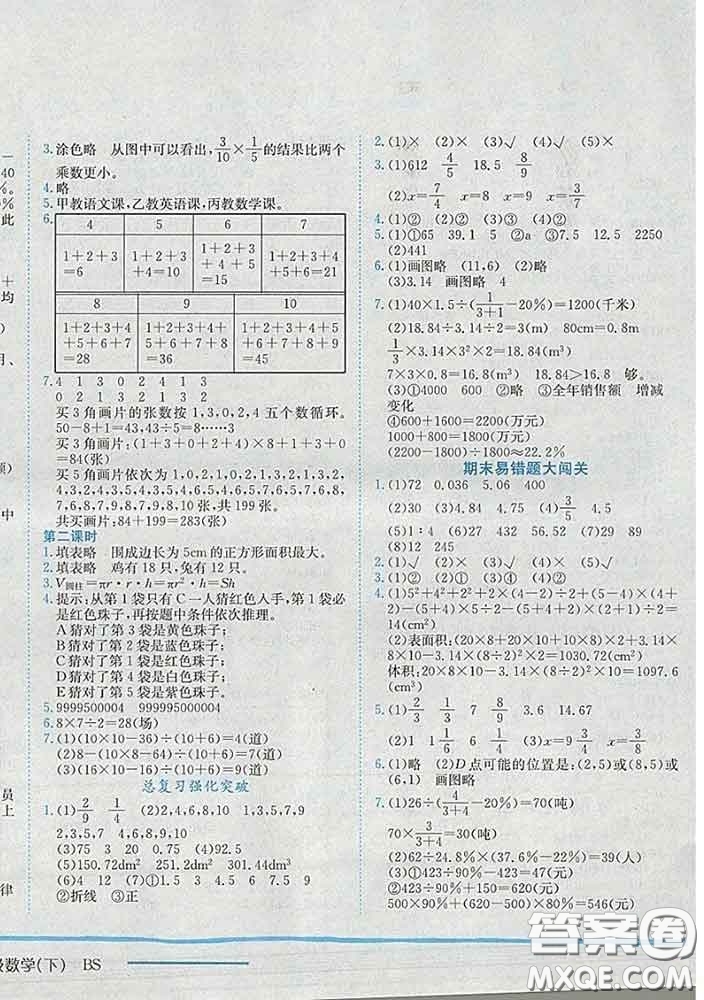 一
40
%。
%
此
+
均
、
额)
中
员
上
律
3.涂色略 从图中可以看出,3/10×1/5的结果比两个
乘数更小。
4.略
5.甲教语文课,乙教英语课,丙教数学课。
6.
4 5 6 7
1+2+3 1+2+3 1+2+3 1+2+3+
=6 +4=10 +4+5 4+5+6=21
=15
8 9 10
1+2+3+4 1+2+3+4 1+2+3+4+5
+5+6+7 +5+6+7+8 +6+7+8+9
=28 =36 =45
7.4 1 3 0 2 4 1 3
0 2 1 3 2 1 3 2
买3角画片的张数按1,3,0,2,4五个数循环。
50-8+1=43,43÷5=8……3
买3角画片:(1+3+0+2+4)×8+1+3+0
=84(张)
买5角画片依次为1,0,2,1,0,2,1,3,2,1,3,2,
4,3,2,4,3,5,4,3,5,4,6,5,4,6,5,7,6,5,7,6,8,
7,6,8,7,9,8,7,9,8,10,共199张。
共买画片:84+199=283(张)
第二课时
1.填表略 围成边长为5cm的正方形面积最大。
2.填表略 鸡有18只,兔有12只。
3.V圆柱=πr·r·h=πr²·h=Sh
4.提示:从第1袋只有C一人猜红色入手,第1袋必
是红色珠子,再按题中条件依次推理。
A猜对了第3袋是黄色珠子;
B猜对了第2袋是蓝色珠子;
C猜对了第1袋是红色珠子;
D猜对了第4袋是白色珠子;
E猜对了第5袋是紫色珠子。
5.9999500004 999995000004
6.8×7÷2=28(场)
7.(1)(10×10-36)÷(10+6)=4(道)
(2)(8-(10×8-64)÷(10+6)=7(道)
(3)(16×10-16)÷(10+6)=9(道)
总复习强化突破
1.(1)2/9 1/4 (2)2,4,6,8,10 1,3,5,7,9
2,3,5,7 4,6,8,9,10
(3)75 3 20 0.75 (4)92.5
(5)150.72dm² 251.2dm² 301.44dm³
(6)4 12 (7)①1.5 3 4.5 6 7.5 9
②折线 ③正
2.(1)× (2)× (3)√ (4)√ (5)×
3.(1)612 4/5 18.5 8/9
(2)x=7/4 x=8 x=9 x=3/7
4.(1)② (2)② (3)③ (4)②
5.(1)①65 39.1 5 ②a ③7.5 12.5 2250
(2)441
6.(1)画图略 (11,6) (2)略
(3)3.14 画图略 4
7.(1)40×1.5÷(1/(3+1)-20%)=1200(千米)
(2)18.84÷3.14÷2=3(m) 80cm=0.8m
1/3×3.14×3²×2=18.84(m³)
7×3×0.8=16.8(m³) 18.84>16.8 够。
(3)①4000 600 ②略 ③全年销售额 增减
变化
④600+1600=2200(万元)
1000+800=1800(万元)
(2200-1800)÷1800≈22.2%
期末易错题大闯关
1.(1)72 0.036 5.06 400
(2)30 (3)4.84 4.75 (4)3/5 5/2
(5)1∶4 (6)27 432 56.52 (7)29 89
(8)12 245
2.(1)√ (2)× (3)√ (4)√
3.(1)③ (2)① (3)③ (4)③
4.(1)5²+4²+2²+2×(4-2)÷(5-4)×(4+2)
(4-2)×5÷2-(5-4)×(5+4+2)÷2=
14(cm²)
(2)表面积:(20×8+20×10+10×8)×2+3.14×
8×10-3.14×(8÷2)²×2=
体积:20×8×10-3.14×(8÷2)²×10=1097.6
(cm³)
5.(1)2/3 1/3 7 8/9 3.6 14.67
(2)1 11/6 6 1/4 8/15
6.(1)略 (2)D点可能的位置是:(2,5)或(8,5)或
(6,1) 画图略
7.(1)26÷(3/(3+4)-20%)=70(吨)
(2)62÷24.8%×(1
(3)①423÷90%=470(元)
500×90%+(620-500)×80%=546(元)
级数学(下) BS
答案圈
MXQE.COM